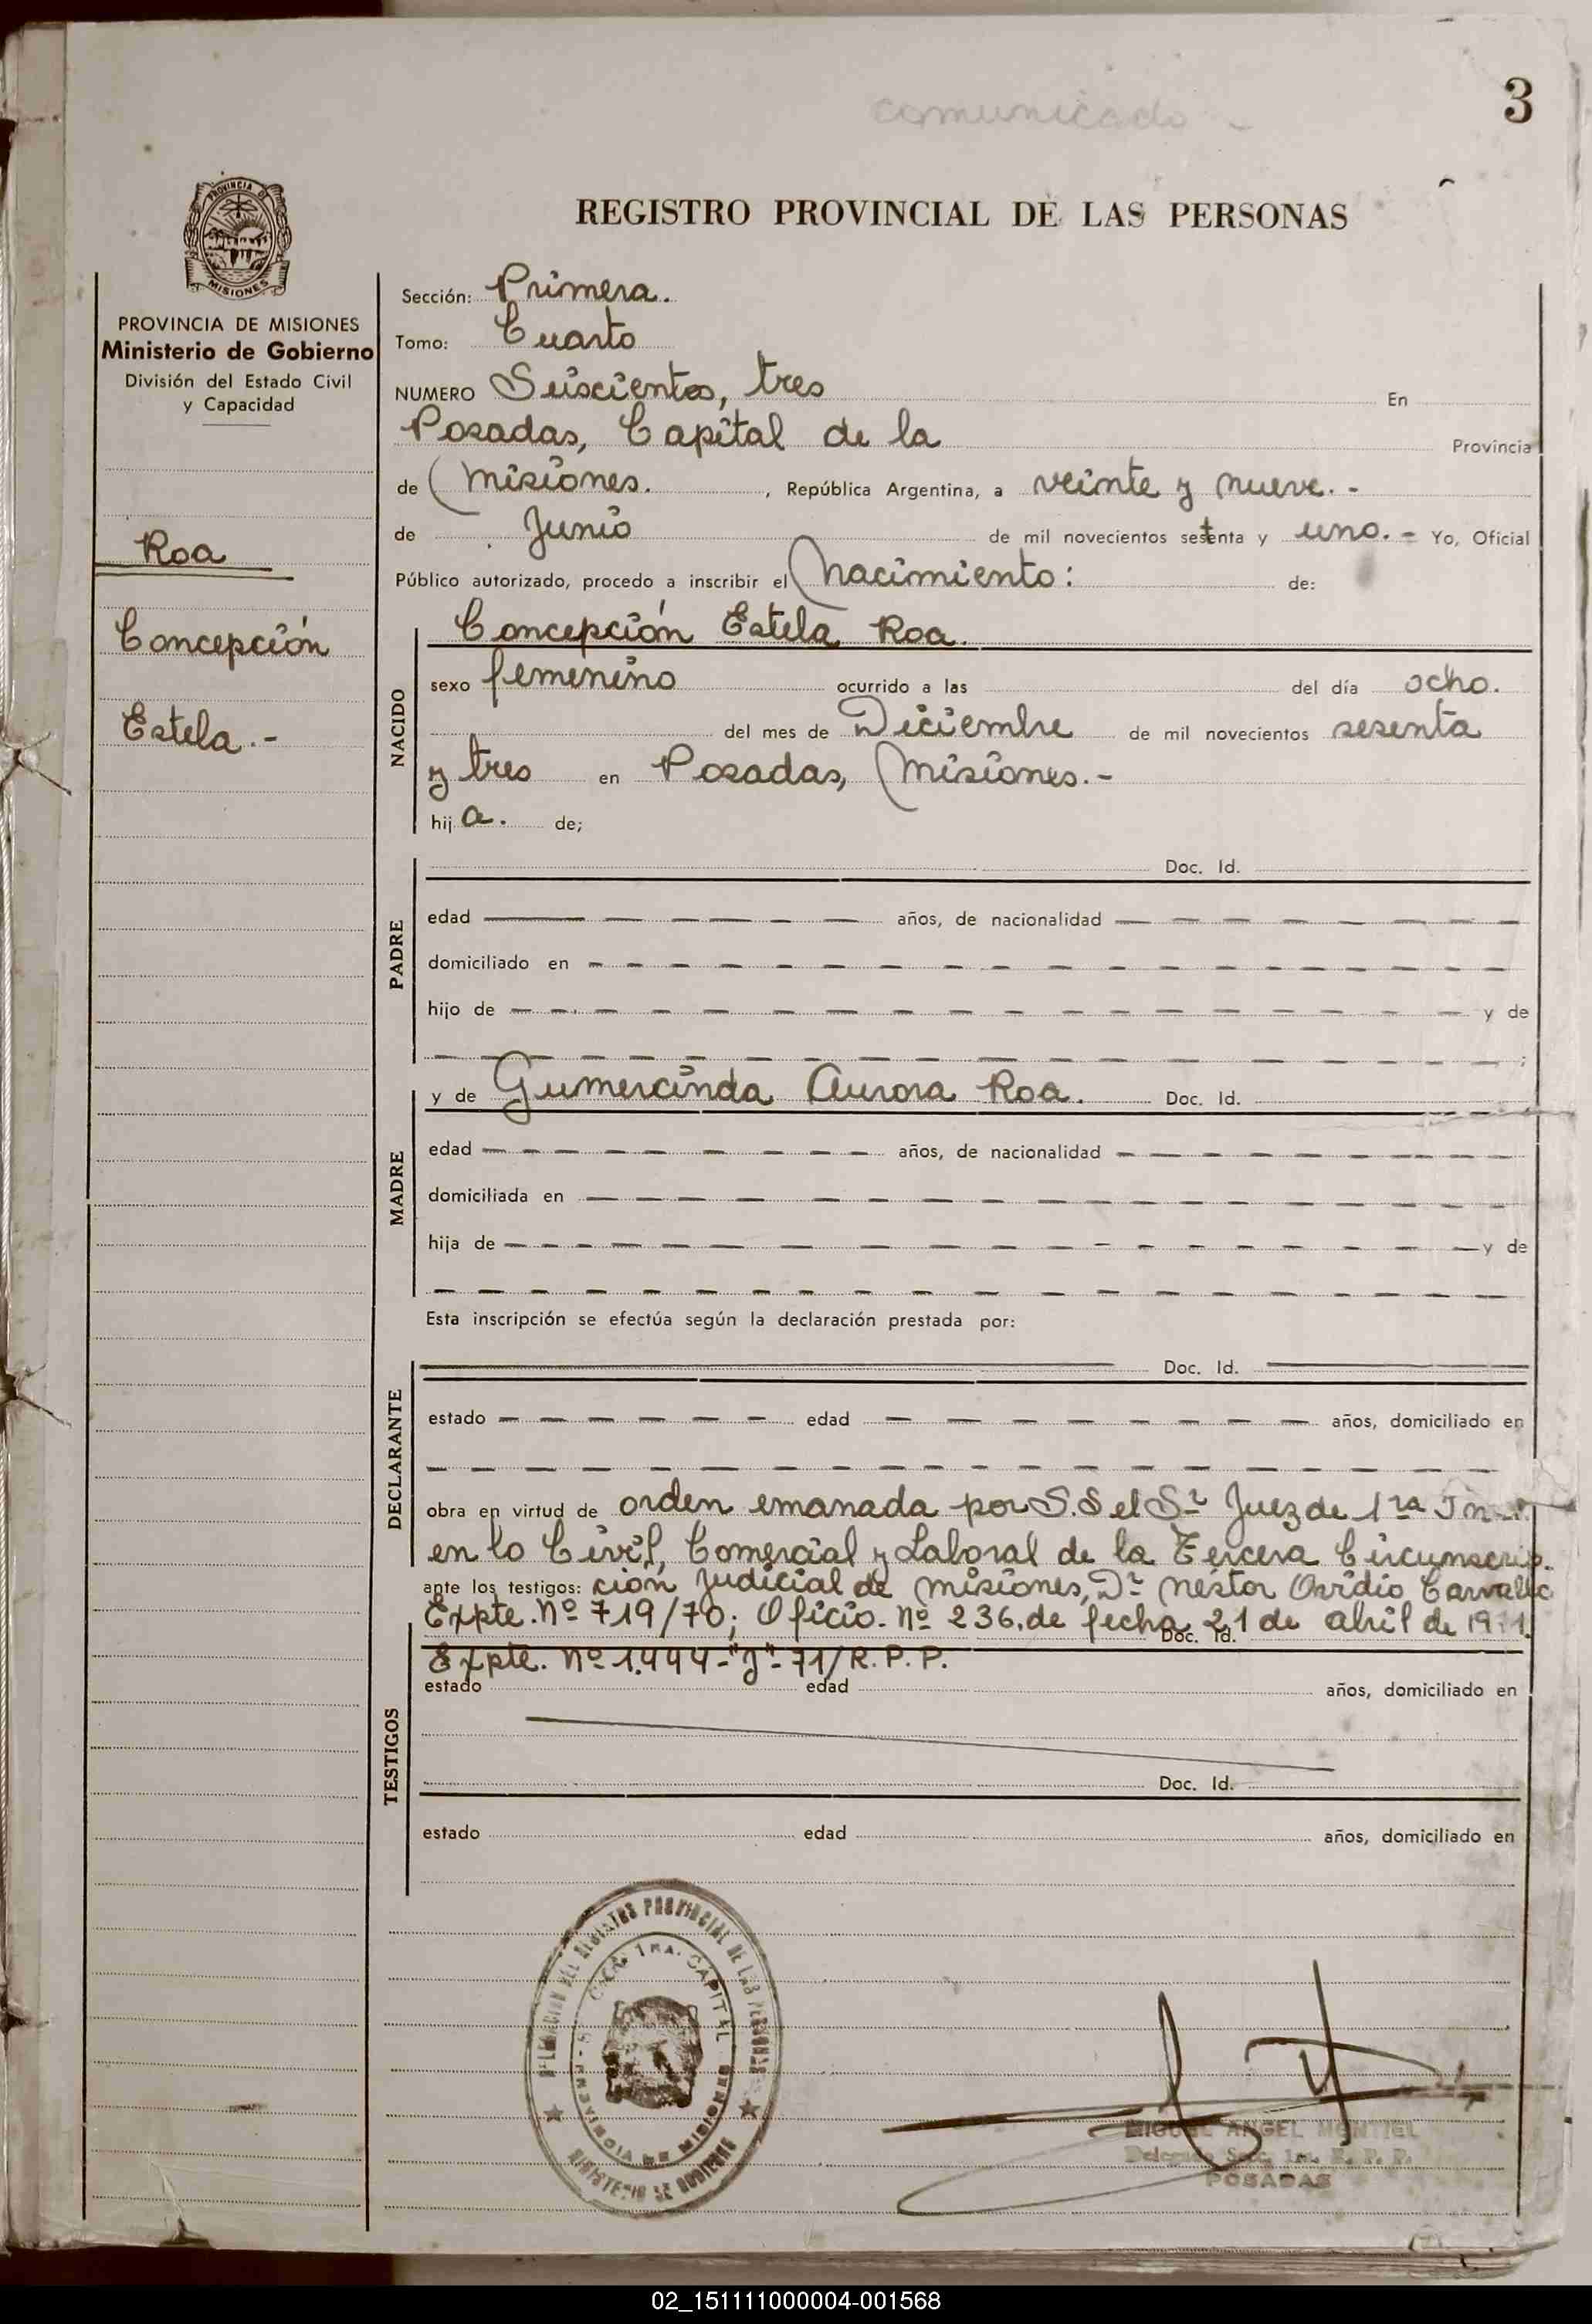 comunicado -
3
REGISTRO PROVINCIAL DE LAS PERSONAS
PROVINCIA DE MISIONES
Ministerio de Gobierno
División del Estado Civil
y Capacidad
Roa
Concepción
Estela.-
Sección: Primera.
Tomo: Cuarto
NUMERO Seiscientos, tres En
Posadas, Capital de la Provincia
de Misiones. , República Argentina, a veinte y nueve.-
de Junio de mil novecientos setenta y uno.- Yo, Oficial
Público autorizado, procedo a inscribir el Nacimiento: de:
NACIDO
Concepción Estela Roa.
sexo femenino ocurrido a las del día ocho.
del mes de Diciembre de mil novecientos sesenta
y tres en Posadas, Misiones.-
hij a. de;
PADRE
Doc. Id.
edad años, de nacionalidad
domiciliado en
hijo de y de
;
MADRE
y de Gumercinda Aurora Roa. Doc. Id.
edad años, de nacionalidad
domiciliada en
hija de y de
Esta inscripción se efectúa según la declaración prestada por:
DECLARANTE
Doc. Id.
estado edad años, domiciliado en
obra en virtud de orden emanada por S.S el Sr Juez de 1ra
en lo Civil, Comercial y Laboral de la Tercera Circunscrip.
ante los testigos: ción Judicial de Misiones, Dr Néstor Ovidio Carvallo
Expte. Nº 719/70; Oficio. Nº 236, de fecha 21 de abril de 1971.
Doc. Id.
Expte. Nº 1.444-"J"-71/R.P.P.
TESTIGOS
estado edad años, domiciliado en
Doc. Id.
estado edad años, domiciliado en
DELEGACION DEL REGISTRO PROVINCIAL DE LAS PERSONAS
MINISTERIO DE GOBIERNO
SECC. 1RA. CAPITAL
PROVINCIA DE MISIONES
MIGUEL ANGEL MONTIEL
Delegado Secc. 1ra. R. P. P.
POSADAS
02_151111000004-001568